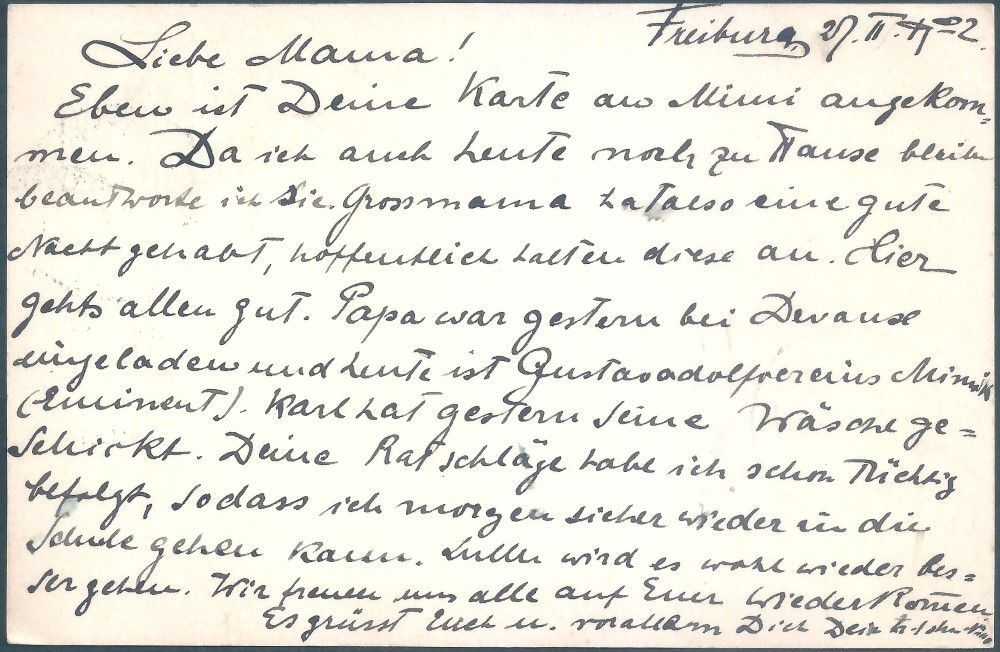 Freiburg, 27. II.
Liebe Mama!
Eben ist Deine Karte an Mimi angekom=
men. Da ich auch heute noch zu Hause bleibe
beantworte ich sie. Grossmama hat also eine gute
Nacht gehabt, hoffentlich halten diese an. Hier
gehts allen gut. Papa war gestern bei Devause
eingeladen und heute ist Gustavadolfvereins
(Eminent). Karl hat gestern seine Wäsche ge=
schickt. Deine Ratschläge habe ich schon tüchtig
befolgt, sodass ich morgen sicher wieder in die
Schule gehen kann. Lulln wird es wohl wieder bes=
ser gehen. Wir freuen uns alle auf Euer Wiederkom̄en.
Es grüsst Euch u. vorallem Dich Dein